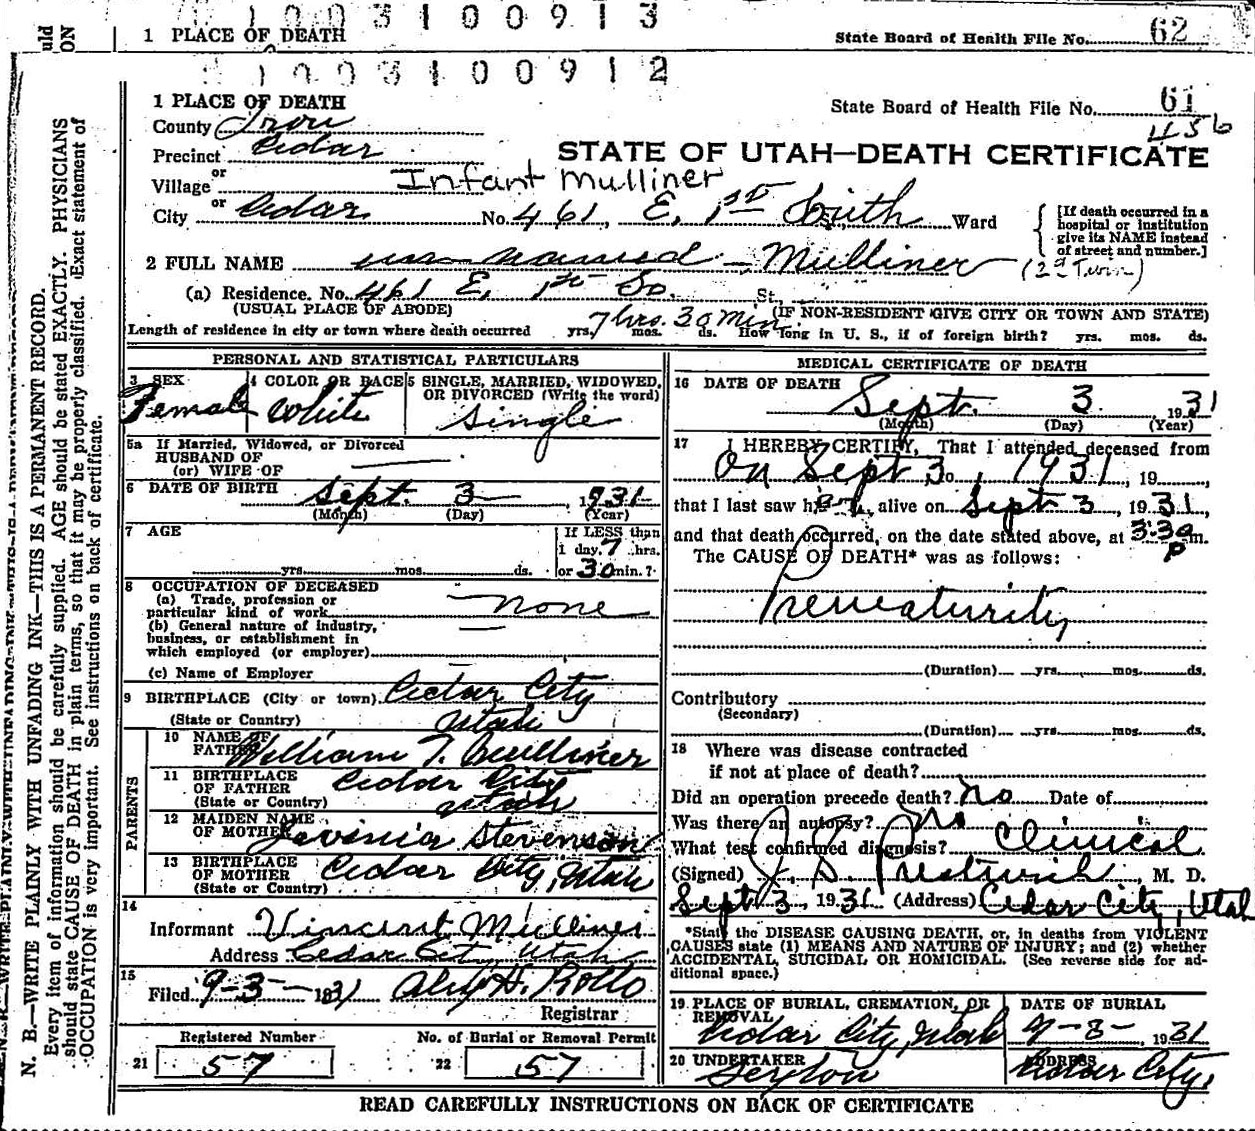 1 0 0 3 1 0 0 9 1 3
uld
ON
1 PLACE OF DEATH
State Board of Health File No. 62
1 0 0 3 1 0 0 9 1 2
1 PLACE OF DEATH
State Board of Health File No. 61
456
County Iron
Precinct Cedar
STATE OF UTAH—DEATH CERTIFICATE
or
Village
Infant Mulliner
or
City Cedar No. 461, E. 1st South St., Ward
[If death occurred in a
hospital or institution
give its NAME instead
of street and number.]
2 FULL NAME un-named - Mulliner (2nd Twin)
(a) Residence. No. 461 E. 1st So. St.
(USUAL PLACE OF ABODE)
(IF NON-RESIDENT GIVE CITY OR TOWN AND STATE)
7 hrs. 30 min.
Length of residence in city or town where death occurred yrs. mos. ds. How long in U. S., if of foreign birth? yrs. mos. ds.
PERSONAL AND STATISTICAL PARTICULARS
3 SEX
Female
4 COLOR OR RACE
White
5 SINGLE, MARRIED, WIDOWED,
OR DIVORCED (Write the word)
Single
5a If Married, Widowed, or Divorced
HUSBAND OF
(or) WIFE OF
6 DATE OF BIRTH Sept. 3 1931
(Month) (Day) (Year)
7 AGE
yrs. mos. ds.
If LESS than
1 day, 7 hrs.
or 30 min.?
8 OCCUPATION OF DECEASED
(a) Trade, profession or
particular kind of work none
(b) General nature of industry,
business, or establishment in
which employed (or employer)
(c) Name of Employer
9 BIRTHPLACE (City or town) Cedar City
(State or Country) Utah
PARENTS
10 NAME OF
FATHER William T. Mulliner
11 BIRTHPLACE
OF FATHER Cedar City
(State or Country) Utah
12 MAIDEN NAME
OF MOTHER Lavinia Stevenson
13 BIRTHPLACE
OF MOTHER Cedar City, Utah
(State or Country)
14
Informant Vincent Mulliner
Address Cedar City, Utah
15
Filed 9-3- 1931 H. Rollo
Registrar
Registered Number
21 57
No. of Burial or Removal Permit
22 57
MEDICAL CERTIFICATE OF DEATH
16 DATE OF DEATH
Sept. 3, 1931
(Month) (Day) (Year)
17 I HEREBY CERTIFY, That I attended deceased from
On Sept 3, 1931, 19
that I last saw her alive on Sept 3, 1931,
and that death occurred, on the date stated above, at 3:30 p m.
The CAUSE OF DEATH* was as follows:
Prematurity
(Duration) yrs. mos. ds.
Contributory
(Secondary)
(Duration) yrs. mos. ds.
18 Where was disease contracted
if not at place of death?
Did an operation precede death? No Date of
Was there an autopsy? No
What test confirmed diagnosis? Clinical
(Signed) J. S. Prestwich, M. D.
Sept 3, 1931 (Address) Cedar City, Utah
*State the DISEASE CAUSING DEATH, or, in deaths from VIOLENT
CAUSES state (1) MEANS AND NATURE OF INJURY; and (2) whether
ACCIDENTAL, SUICIDAL OR HOMICIDAL. (See reverse side for ad-
ditional space.)
19 PLACE OF BURIAL, CREMATION, OR
REMOVAL
Cedar City, Utah
DATE OF BURIAL
9-3-, 1931
20 UNDERTAKER
Sexton
ADDRESS
Cedar City,
READ CAREFULLY INSTRUCTIONS ON BACK OF CERTIFICATE
N. B.—WRITE PLAINLY WITH UNFADING INK—THIS IS A PERMANENT RECORD.
Every item of information should be carefully supplied. AGE should be stated EXACTLY. PHYSICIANS
should state CAUSE OF DEATH in plain terms, so that it may be properly classified. Exact statement of
OCCUPATION is very important. See instructions on back of certificate.